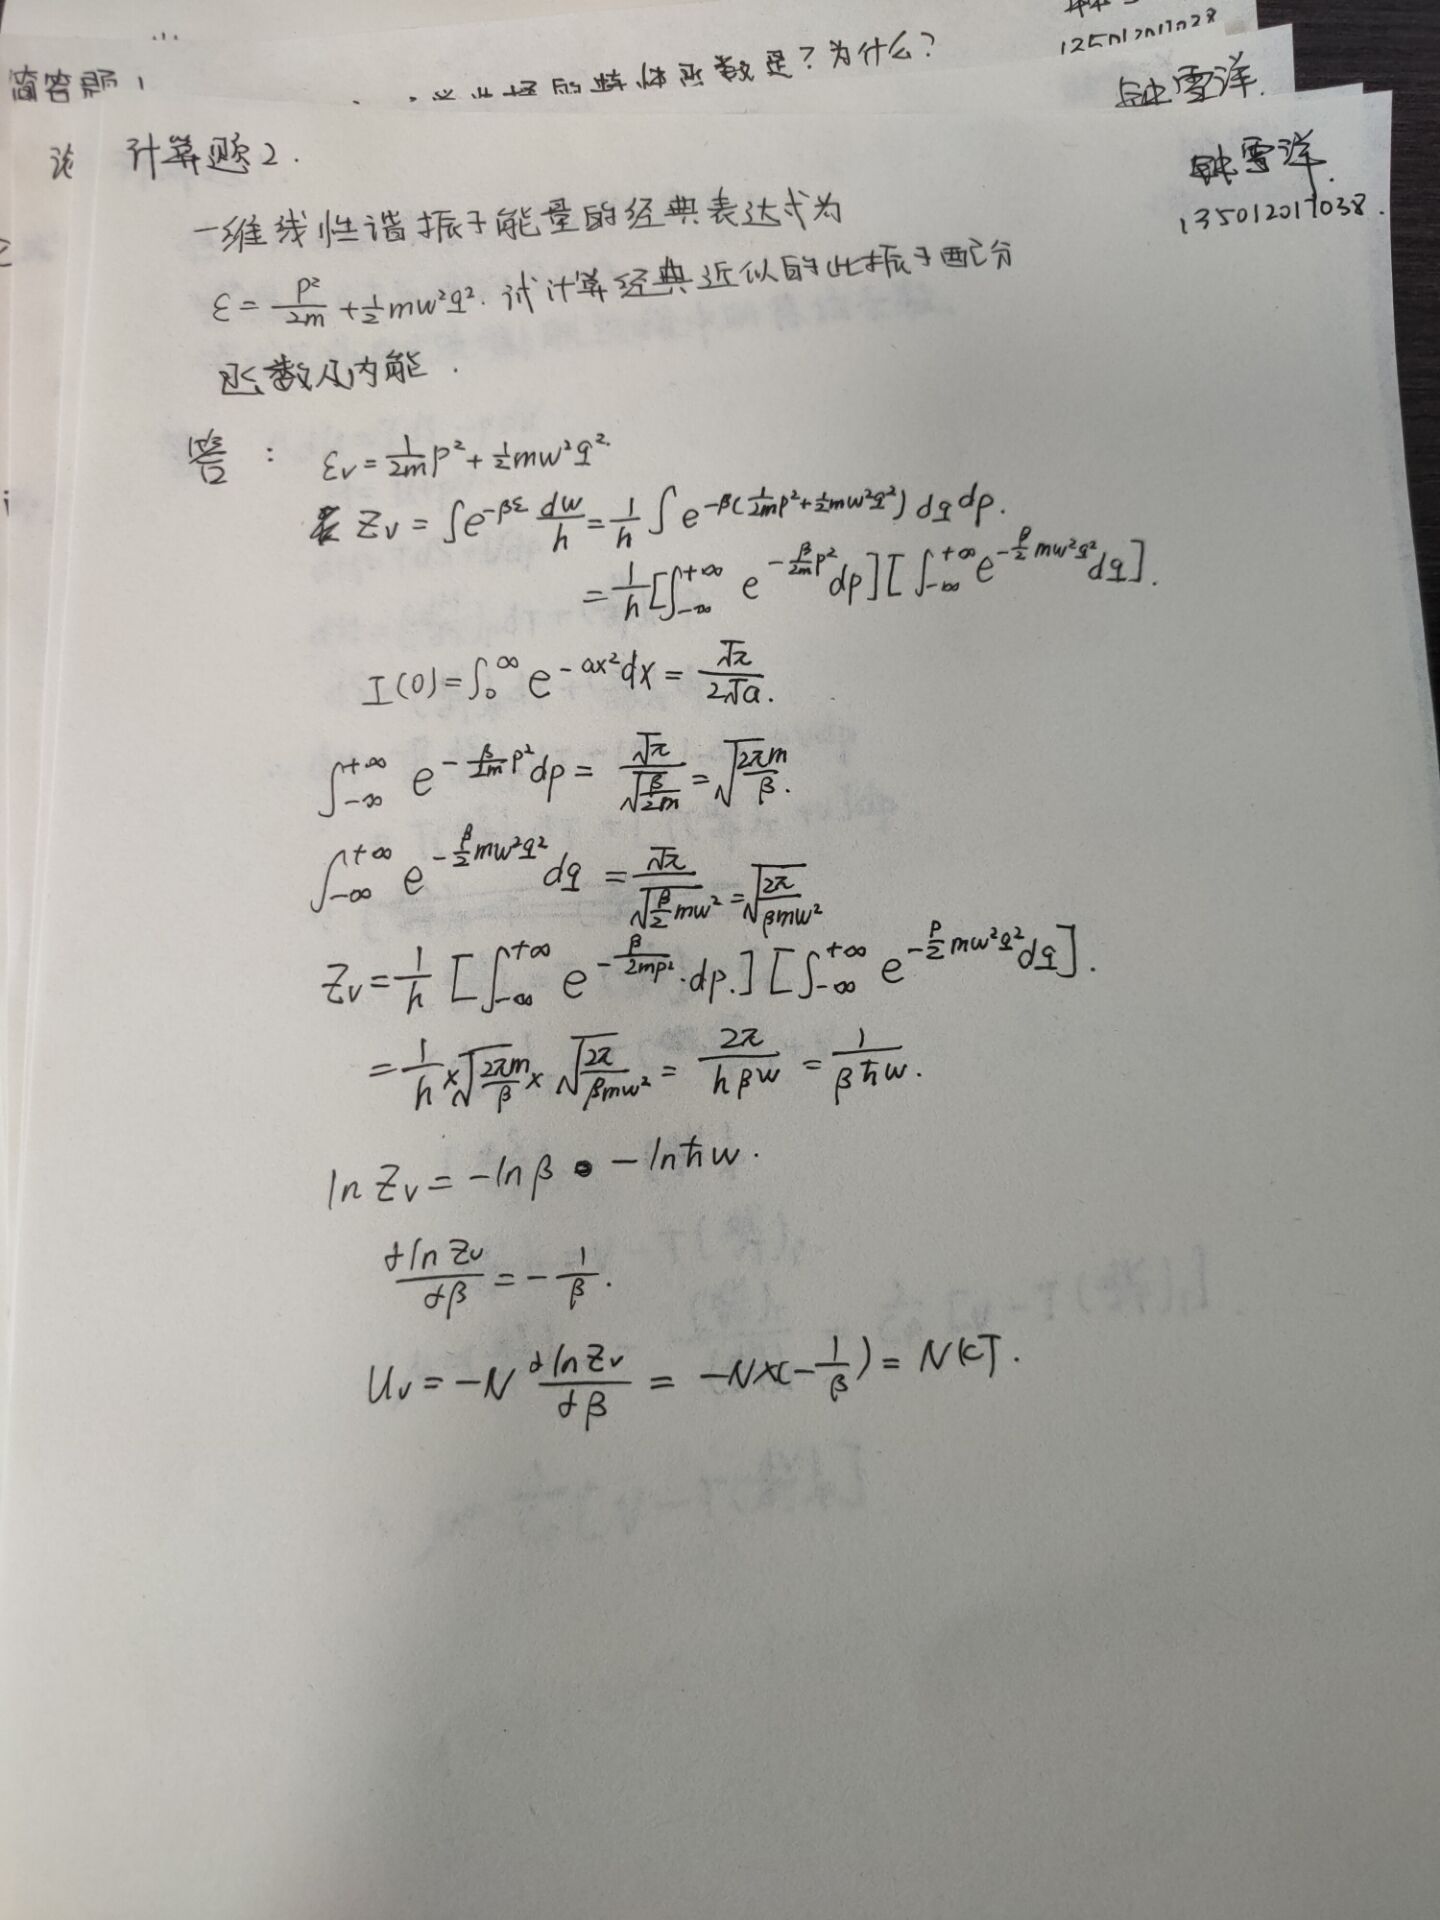 简答题1
数是？为什么？
计算题2.
钟雪洋.
135012017038.
一维线性谐振子能量的经典表达式为
ε = p²/2m + ½mw²q². 试计算经典近似的此振子配分
函数及内能.
答: εv = 1/2m p² + ½mw²q².
Zv = ∫e^(-βε) dw/h = 1/h ∫ e^(-β(1/2m p² + ½mw²q²)) dq dp.
= 1/h [∫_{-∞}^{+∞} e^(-β/2m p²) dp] [∫_{-∞}^{+∞} e^(-β/2 mw²q²) dq].
I(0) = ∫_0^∞ e^(-ax²) dx = √π/2√a.
∫_{-∞}^{+∞} e^(-β/2m p²) dp = √π/√(β/2m) = √(2πm/β).
∫_{-∞}^{+∞} e^(-β/2 mw²q²) dq = √π/√(β/2 mw²) = √(2π/βmw²)
Zv = 1/h [∫_{-∞}^{+∞} e^(-β/2mp²)·dp.] [∫_{-∞}^{+∞} e^(-β/2 mw²q²) dq].
= 1/h × √(2πm/β) × √(2π/βmw²) = 2π/hβw = 1/βħw.
ln Zv = -lnβ - lnħw.
∂lnZv/∂β = -1/β.
Uv = -N ∂lnZv/∂β = -N×(-1/β) = NkT.